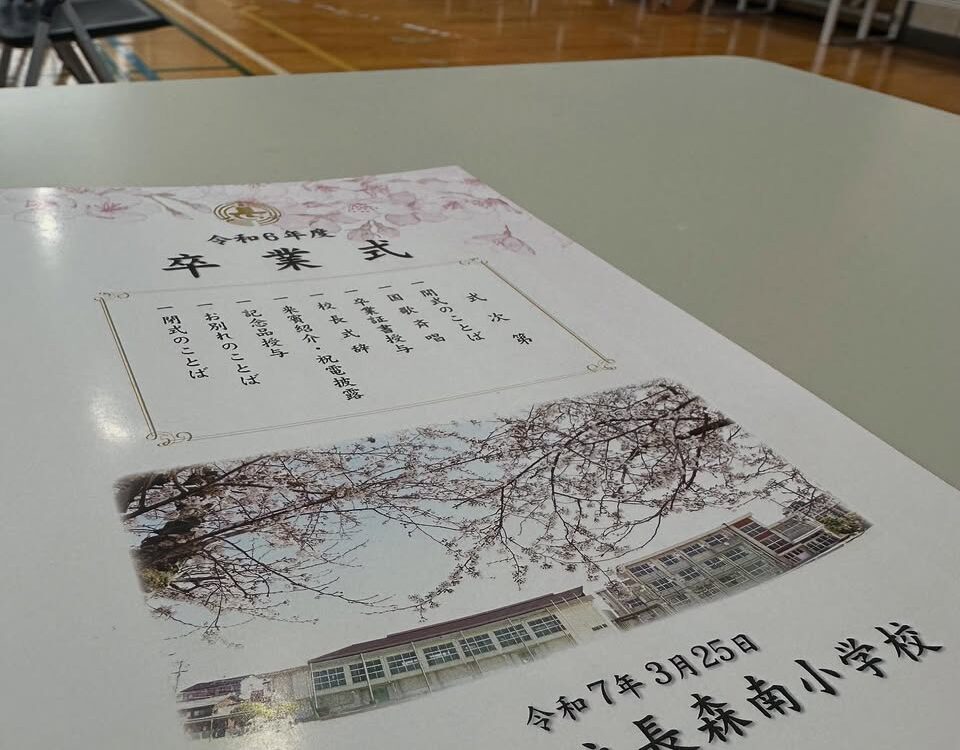 令和6年度
卒業式
式次第
一 開式のことば
一 国歌斉唱
一 卒業証書授与
一 校長式辞
一 来賓紹介・祝電披露
一 記念品授与
一 お別れのことば
一 閉式のことば
令和7年3月25日
長森南小学校